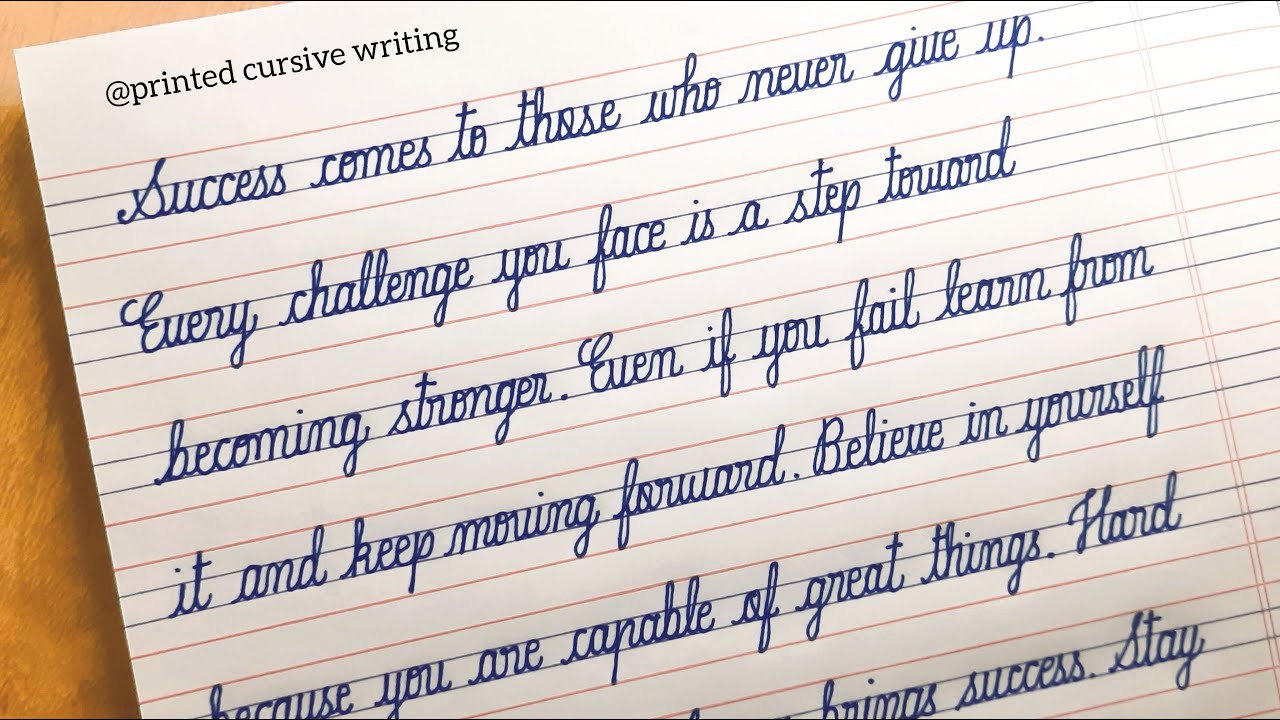 @printed cursive writing
Success comes to those who never give up.
Every challenge you face is a step toward
becoming stronger. Even if you fail learn from
it and keep moving forward. Believe in yourself
because you are capable of great things. Hard
brings success. Stay